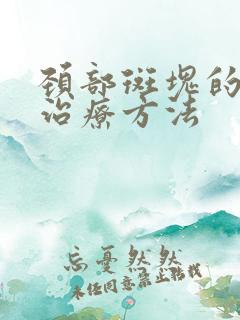 颈部斑塊的
治療方法
忘憂然然
未经同意禁止转载